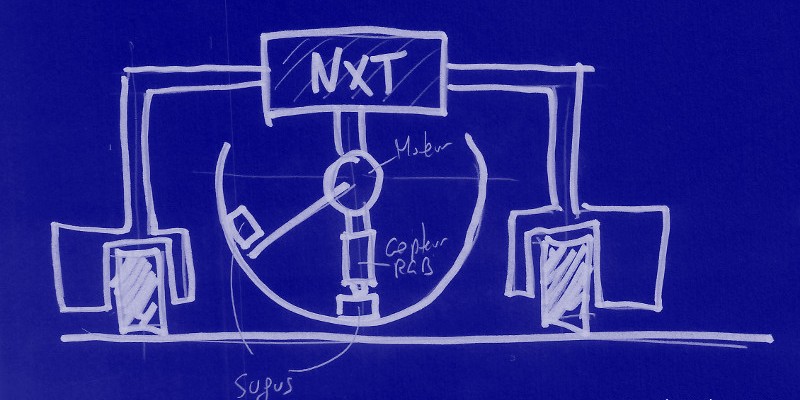 NXT
Moteur
Capteur
RGB
Sugus